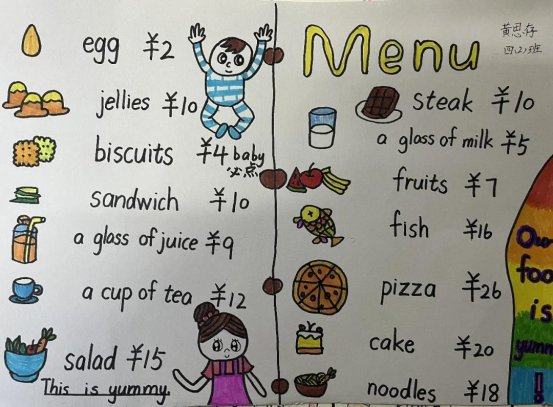 egg ¥2
jellies ¥10
biscuits ¥4 baby
必点
sandwich ¥10
a glass of juice ¥9
a cup of tea ¥12
salad ¥15
This is yummy.
Menu
黄思存
四(2)班
steak ¥10
a glass of milk ¥5
fruits ¥7
fish ¥16
pizza ¥26
cake ¥20
noodles ¥18
Ou
foo
is
yumm
!